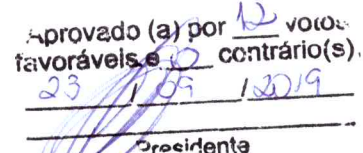 Aprovado (a) por 12 votos
favoráveis e 00 contrário(s).
23 / 09 / 2019
Presidente